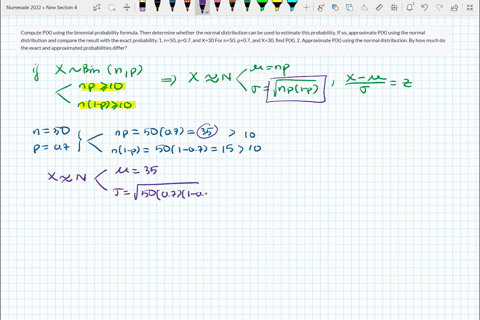 Numerade 2022 » New Section 4
Compute P(X) using the binomial probability formula. Then determine whether the normal distribution can be used to estimate this probability. If so, approximate P(X) using the normal
distribution and compare the result with the exact probability. 1. n=50, p=0.7, and X=30 For n=50, p=0.7, and X=30, find P(X). 2. Approximate P(X) using the normal distribution. By how much do
the exact and approximated probabilities differ?
if X~Bin (n,p) ⇒ X ≈ N < μ=np
np ≥10 σ=√np(1-p) , x-μ/σ = z
n(1-p)≥10
n=50 np = 50(0.7) = 35 > 10
p=0.7 n(1-p) = 50(1-0.7) = 15 > 10
X≈N < μ = 35
σ=√50(0.7)(1-0.